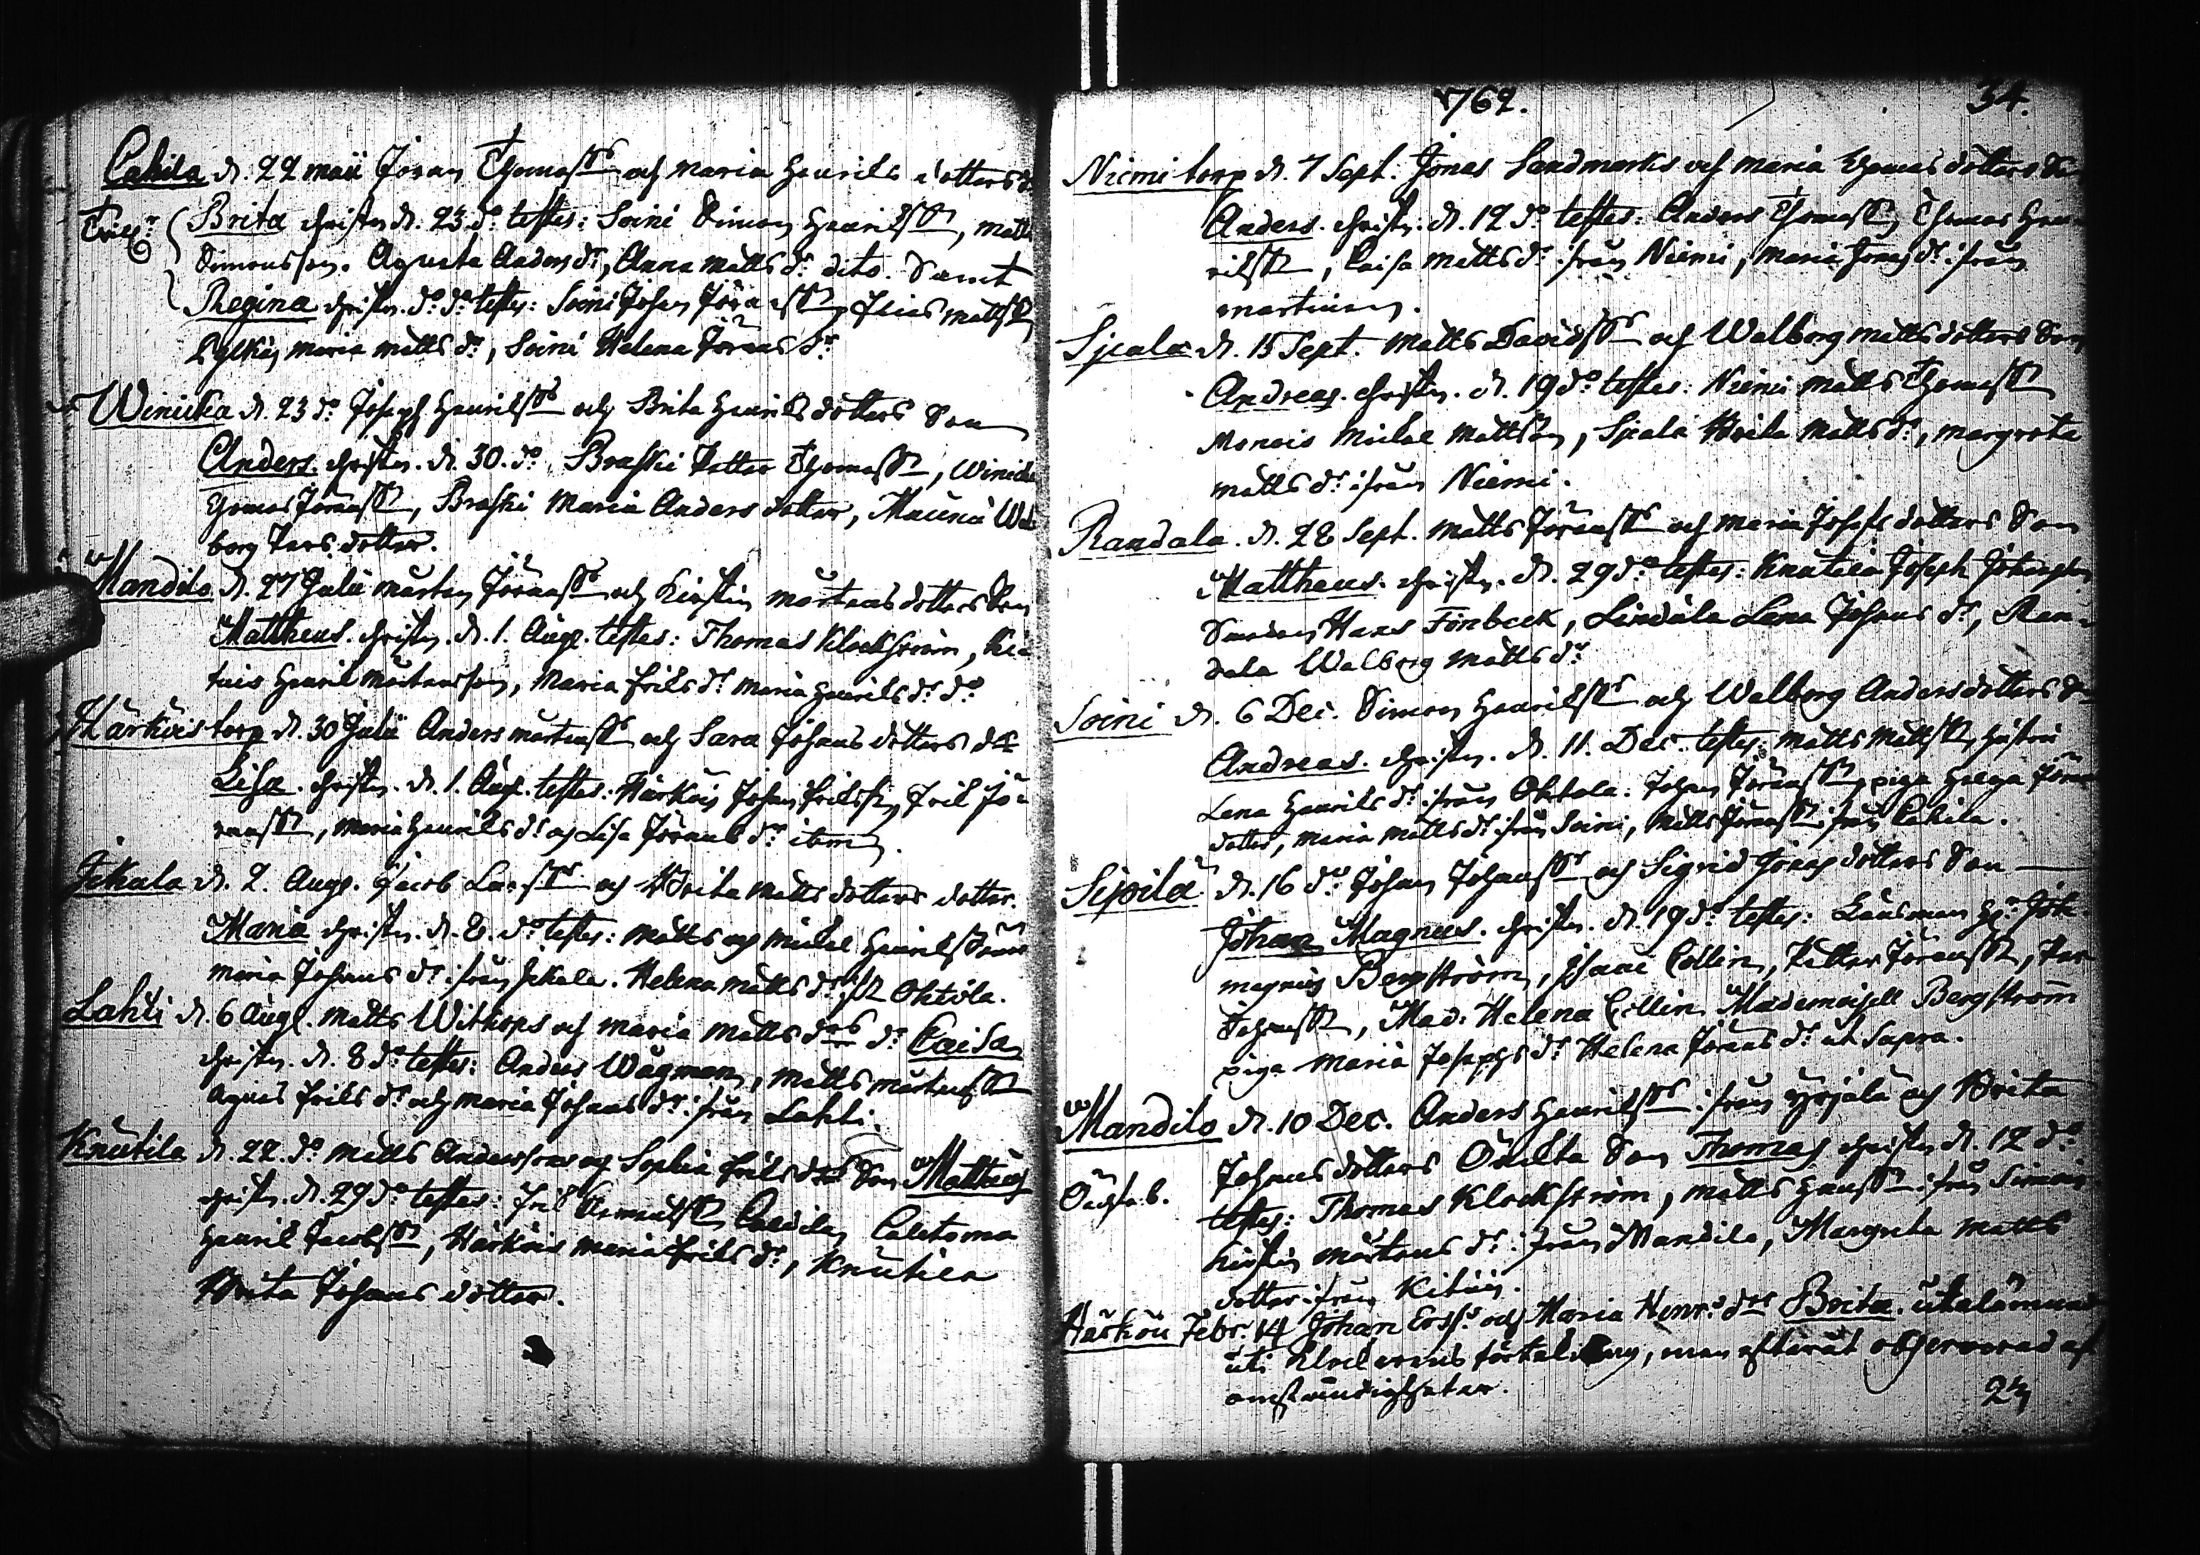 Cahila d. 22 maii Jöran Thomass:s och Maria Henrics dotters d:
Brita christn. d. 23 d:o testes: Soini Simon Henricss:n, Matts
Simonsson. Agneta Anders d:r, Anna Matts d:r dito. Samt
Regina christn. d:o d:o testes: Soini Johan Jöranss:n, Matts:n
Maria Matts d:r, Soini Helena Jörans d:r
Winicka d. 23 d:o Joseph Henricss:s och Brita Henrics dotters Son
Anders. christn. d. 30. d:o Braski Petter Thomass:n, Winicka
Thomas Jöranss:n, Braski Maria Anders dotter, Mauriu Wal
borg Pers dotter.
Mandilo d. 27 Julii Mårten Jöranss:s och Kirstin Mårtens dotters Son
Mattheus. christn. d. 1. Aug. testes: Thomas Klockström, Ki
tuis Henric Mårtensson, Maria Erics d:r Maria Henrics d:r d:o
Härköis torp d. 30 Julii Anders Mårtenss:s och Sara Johans dotters d:r
Lisa. christn. d. 1. Aug. testes: Härköis Johan Ericss:n, Eric Jö
ranss:n, Maria Henrics d:r och Lisa Jörans d:r item.
Jekala d. 2. Aug. Jacob Larss:s och Brita Matts dotters dotter.
Maria christn. d. 8. d:o testes: Matts och Michel Henricssöner
Maria Johans d:r ifrån Jekala. Helena Matts d:r ifr. Oktola.
Lahti d. 6 Aug. Matts Withops och Maria Matts d:rs d:r Caisa
christn. d. 8 d:o testes: Anders Wägman, Matts Mårtenss:n
Agnes Erics d:r och Maria Johans d:r ifrån Lahti.
Knutila d. 22. d:o Matts Anderssons och Sophia Erics d:rs Son Mattheus
christn. d. 29 d:o testes:
Henric Jacobss:n, Härköis Maria Erics d:r, Knutila
Brita Johans dotter.
1762. 34.
Niemi torp d. 7 Sept. Jonas Sandmarks och Maria Thomas dotters So
Anders. christn. d. 12 d:o testes: Anders Thomass:n, Thomas Hen
ricss:n, Caisa Matts d:r ifrån Niemi, Maria Jöran d:r ifrån
martinien.
Sjeala d. 15 Sept. Matts Davidss:s och Walborg Matts dotters Son
Andreas. christn. d. 19 d:o testes: Niemi Matts Thomass:n
Michel Mattsson, Brita Matts d:r, Margreta
Matts d:r ifrån Niemi.
Randala. d. 28 Sept. Matts Jöranss:s och Maria Josephs dotters Son
Mattheus. christn. d. 29 d:o testes: Knutila Joseph
Hans Fönbeck, Lindula Lena Johans d:r, Ran
dala Walborg Matts d:r
Soini d. 6 Dec. Simon Henricss:s och Walborg Anders dotters So
Andreas. christn. d. 11. Dec. testes: Matts Mattss:n, hustru
Lena Henrics d:r ifrån Oktola. Johan Jöranss:n, piga Helga Jörans
dotter, Maria Matts d:r ifrån Soini, Matts Jöranss:n ifrån Cahila.
Sipilä d. 16 d:o Johan Johanss:s och Sigrid Jörans dotters Son
Johan Magnus. christn. d. 19 d:o testes: Länsman H:r Joh.
magnus Bergström, Isaac Collin, Petter Jöranss:n, Per
Johanss:n, Mad: Helena Collin Mademoisell Bergström
piga Maria Josephs d:r Helena Jörans d:r ut Supra.
Mandilo d. 10 Dec. Anders Henricss:s ifrån Yrjälä och Brita
Johans dotters Oäckta Son Thomas christn. d. 12 d:o
Oächta b.
testes: Thomas Klockström, Matts Hanss:n ifrån Simuis
Kirstin Mårtens d:r ifrån Mandilo, Margreta Matts
dotter ifrån Kituis.
Härköis Febr. 14 Johan Erss:s och Maria Henr:s d:rs Brita. utelämnad
uti Klockarens förtekning, men efteråt observerad af
omständigheter.
24